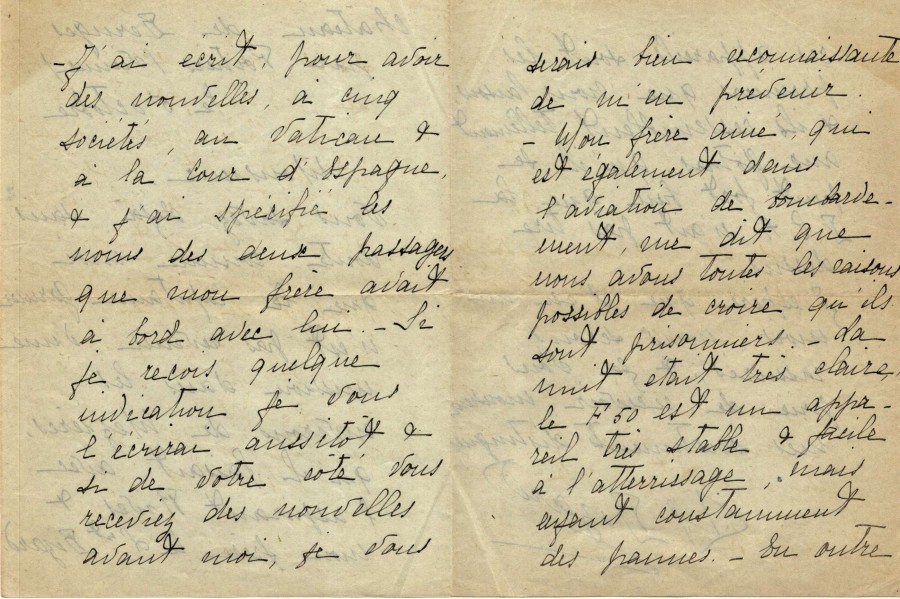 - J'ai ecrit, pour avoir
des nouvelles, à cinq
sociétés, au Vatican &
à la cour d'Espagne,
& j'ai spécifié les
noms des deux passagers
que mon frère avait
à bord avec lui. - Si
je reçois quelque
indication je vous
l'écrirai aussitôt &
si de votre côté vous
receviez des nouvelles
avant moi, je vous
serais bien reconnaissante
de m'en prévenir.
- Mon frère ainé qui
est également dans
l'aviation de bombarde-
ment, me dit que
nous avons toutes les raisons
possibles de croire qu'ils
sont prisonniers. - La
nuit était très claire,
le F50 est un appa-
reil très stable & facile
à l'atterrissage, mais
ayant constamment
des pannes. - En outre